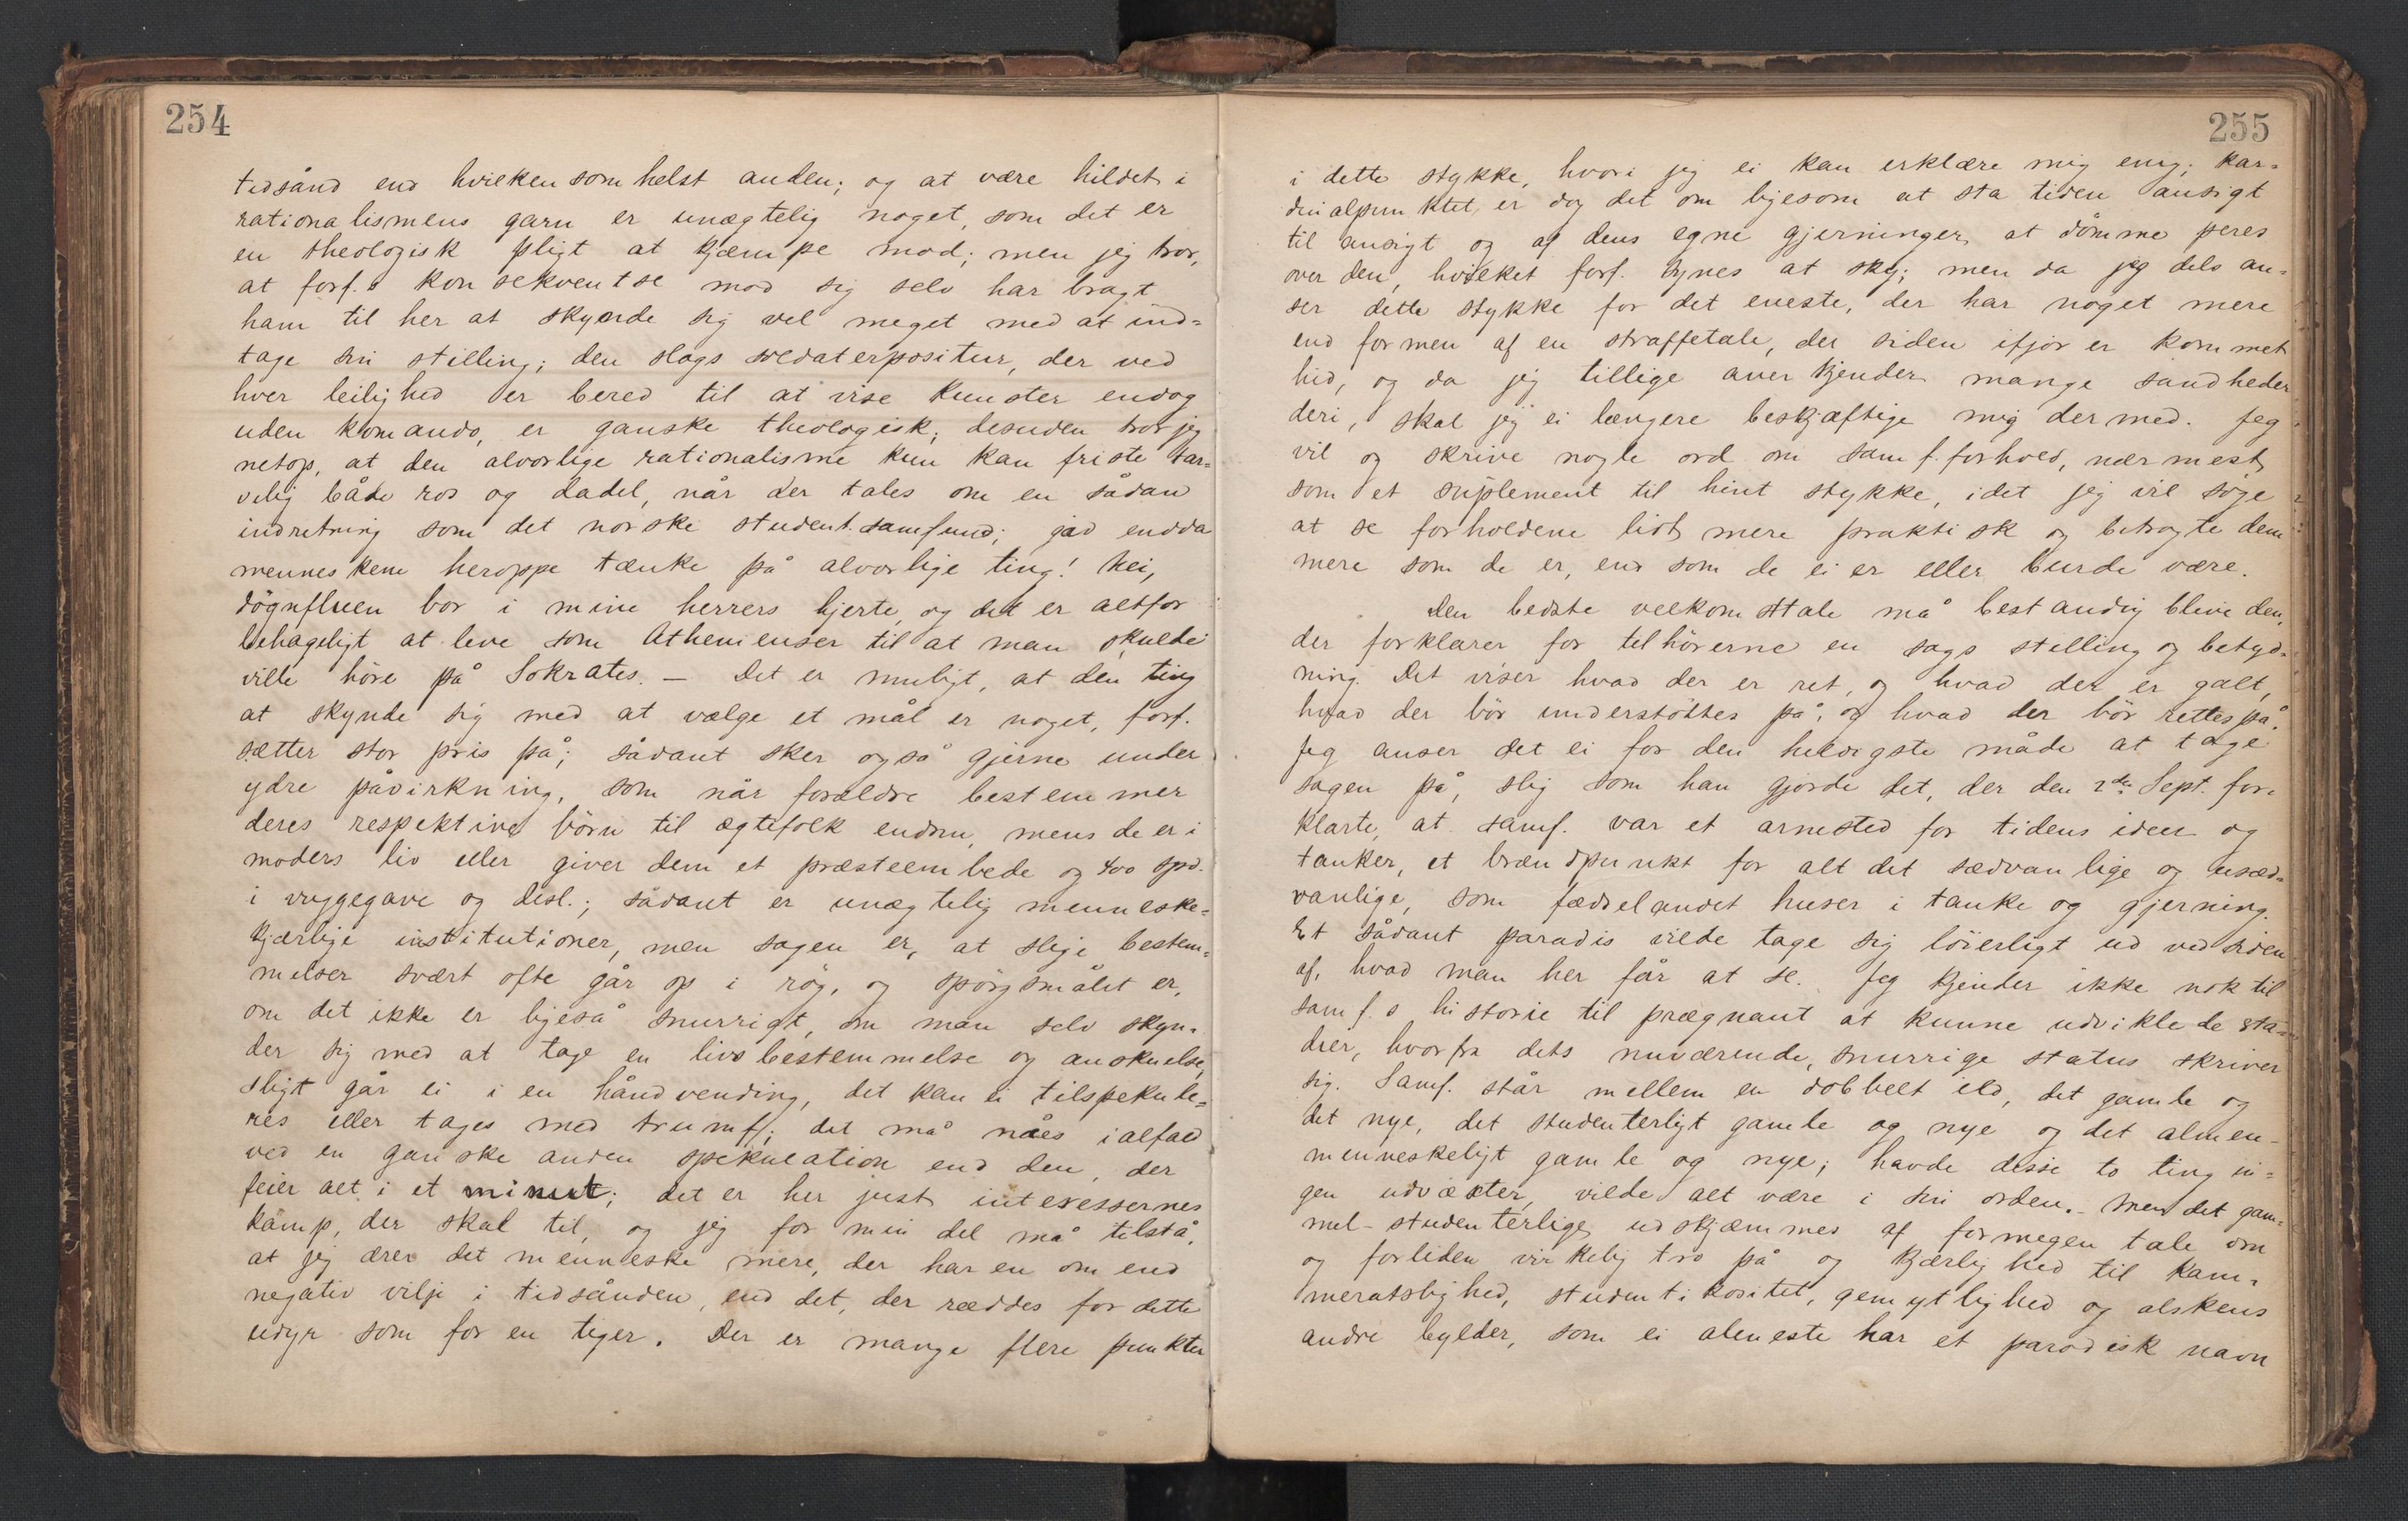 254
tidsånd end hvilkensomhelst anden; og at være hildet i
rationalismens garn er unægtelig noget, som det er
en theologisk pligt at kjæmpe mod; men jeg tror,
at forf.s konsekventse mod sig selv har bragt
ham til her at skynde sig vel meget med at ind=
tage sin stilling; den slags soldaterpositur, der ved
hver leilighed er bered til at vise kunster endog
uden komando, er ganske theologisk; desuden tror jeg
netop, at den alvorlige rationalisme kun kan friste tar=
velig både ros og dadel, når der tales om en sådan
indretning som det norske student.samfund; gad endda
menneskene heroppe tænke på alvorlige ting! Nei,
døgnfluen bor i mine herrers hjerte, og det er altfor
behageligt at leve som Athenienser til at man skulde
ville høre på Sokrates. – Det er muligt, at den ting
at skynde sig med at vælge et mål er noget, forf.
sætter stor pris på; sådant sker også gjerne under
ydre påvirkning, som når forældre bestemmer
deres respektive børn til ægtefolk endnu, mens de er i
moders liv eller giver dem et præsteembede og 400 spd.
i vuggegave og desl.; sådant er unægtelig menneske=
kjærlige institutioner, men sagen er, at slige bestem=
melser svært ofte går op i røg, og spørgsmålet er,
om det ikke er ligeså snurrigt, om man selv skyn=
der sig med at tage en livsbestemmelse og anskuelse,
sligt går ei i en håndvending, det kan ei tilspekule=
res eller tages med trumf; det må nåes ialfald
ved en ganske anden spekulation end den, der
feier alt i et minut; det er her just interessernes
kamp, der skal til, og jeg for min del må tilstå,
at jeg ærer det menneske mere, der har en om end
negativ vilje i tidsånden, end det, der ræddes for dette
udyr som for en tiger. Der er mange flere punkter
255
i dette stykke, hvori jeg ei kan erklære mig enig; kar=
dinalpunktet er dog det om ligesom at stå tiden ansigt
til ansigt og af dens egne gjerninger at dømme
over den, hvilket forf. synes at sky; men da jeg dels an=
ser dette stykke for det eneste, der har noget mere
end formen af en straffetale, der siden ifjor er kommet
hid, og da jeg tillige anerkjender mange sandheder
deri, skal jeg ei længere beskjæftige mig dermed. Jeg
vil og skrive nogle ord om samf.forhold, nærmest
som et suplement til hint stykke, idet jeg vil søge
at se forholdene lidt mere praktisk og betragte dem
mere som de er, end som de ei er eller burde være.
Den bedste velkomsttale må bestandig blive den,
der forklarer for tilhørerne en sags stilling og betyd=
ning. Det viser hvad der er ret, og hvad der er galt,
hvad der bør understøttes på, og hvad der bør rettes på.
Jeg anser det ei for den heldigste måde at tage
sagen på, slig som han gjorde det, der den 2den Sept. for=
klarte, at samf. var et arnested for tidens ideer og
tanker, et brændpunkt for alt det sædvanlige og usæd=
vanlige, som fædrelandet huser i tanke og gjerning.
Et sådant paradis vilde tage sig løierligt ud ved siden
af, hvad man her får at se. Jeg kjender ikke nok til
samf.s historie til prægnant at kunne udvikle de sta=
dier, hvorfra dets nuværende, snurrige status skriver
sig. Samf. står mellem en dobbelt ild, det gamle og
det nye, det studenterligt gamle og nye og det almen=
menneskeligt gamle og nye; havde disse to ting in=
gen udvæxter, vilde alt være i sin orden. – Men det gam=
mel-studenterlige udskjæmmes af formegen tale om
og forliden virkelig tro på og kjærlighed til kam=
meratslighed, studentikositet, gemytlighed og alskens
andre bylder, som ei aleneste har et parodisk navn